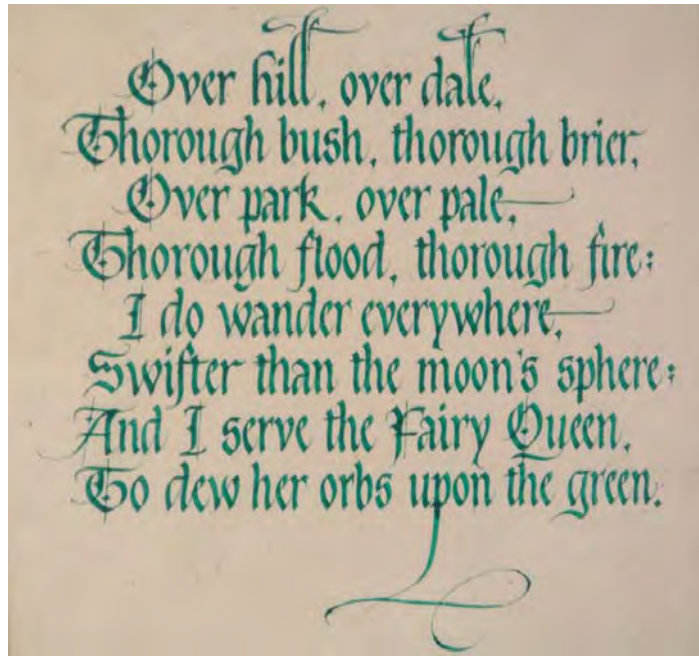 Over hill, over dale,
Thorough bush, thorough brier,
Over park, over pale,
Thorough flood, thorough fire:
I do wander everywhere,
Swifter than the moon's sphere:
And I serve the Fairy Queen,
To dew her orbs upon the green.